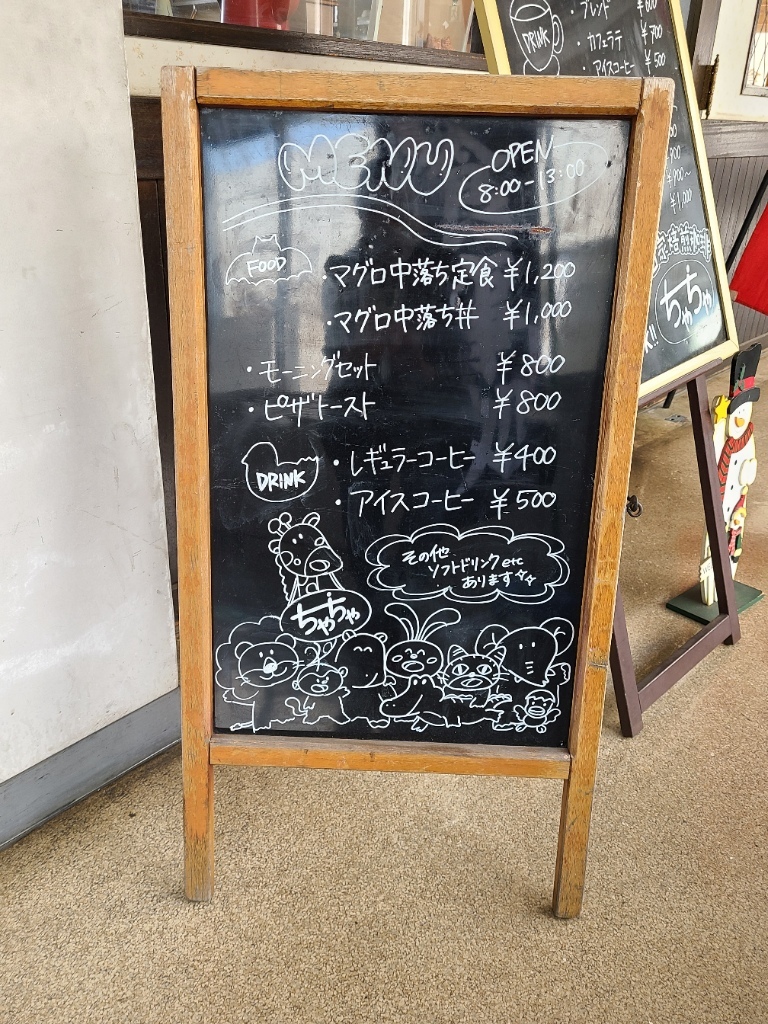 MENU
OPEN
8:00-13:00
FOOD
・マグロ中落ち定食 ¥1,200
・マグロ中落ち丼 ¥1,000
・モーニングセット ¥800
・ピザトースト ¥800
DRINK
・レギュラーコーヒー ¥400
・アイスコーヒー ¥500
その他
ソフトドリンクetc
あります☆☆
ちゃちゃ
DRINK
・ブレンド ¥600
・カフェラテ ¥700
・アイスコーヒー ¥500
¥1,000
ちゃちゃ